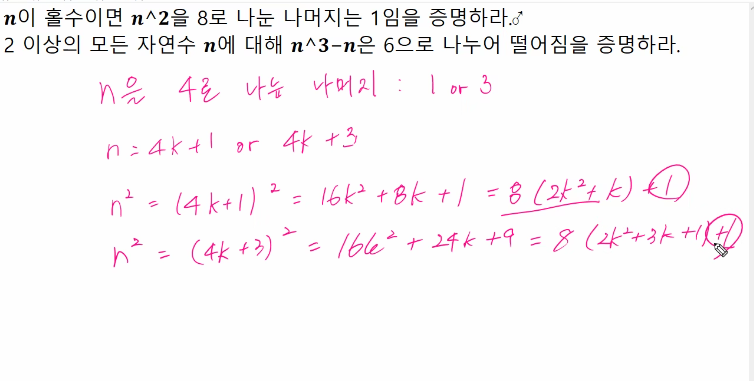 n이 홀수이면 n^2을 8로 나눈 나머지는 1임을 증명하라.♂
2 이상의 모든 자연수 n에 대해 n^3-n은 6으로 나누어 떨어짐을 증명하라.
n을 4로 나눈 나머지 : 1 or 3
n = 4k+1 or 4k+3
n² = (4k+1)² = 16k² + 8k + 1 = 8(2k²+k)+1
n² = (4k+3)² = 16k² + 24k + 9 = 8(2k²+3k+1)+1